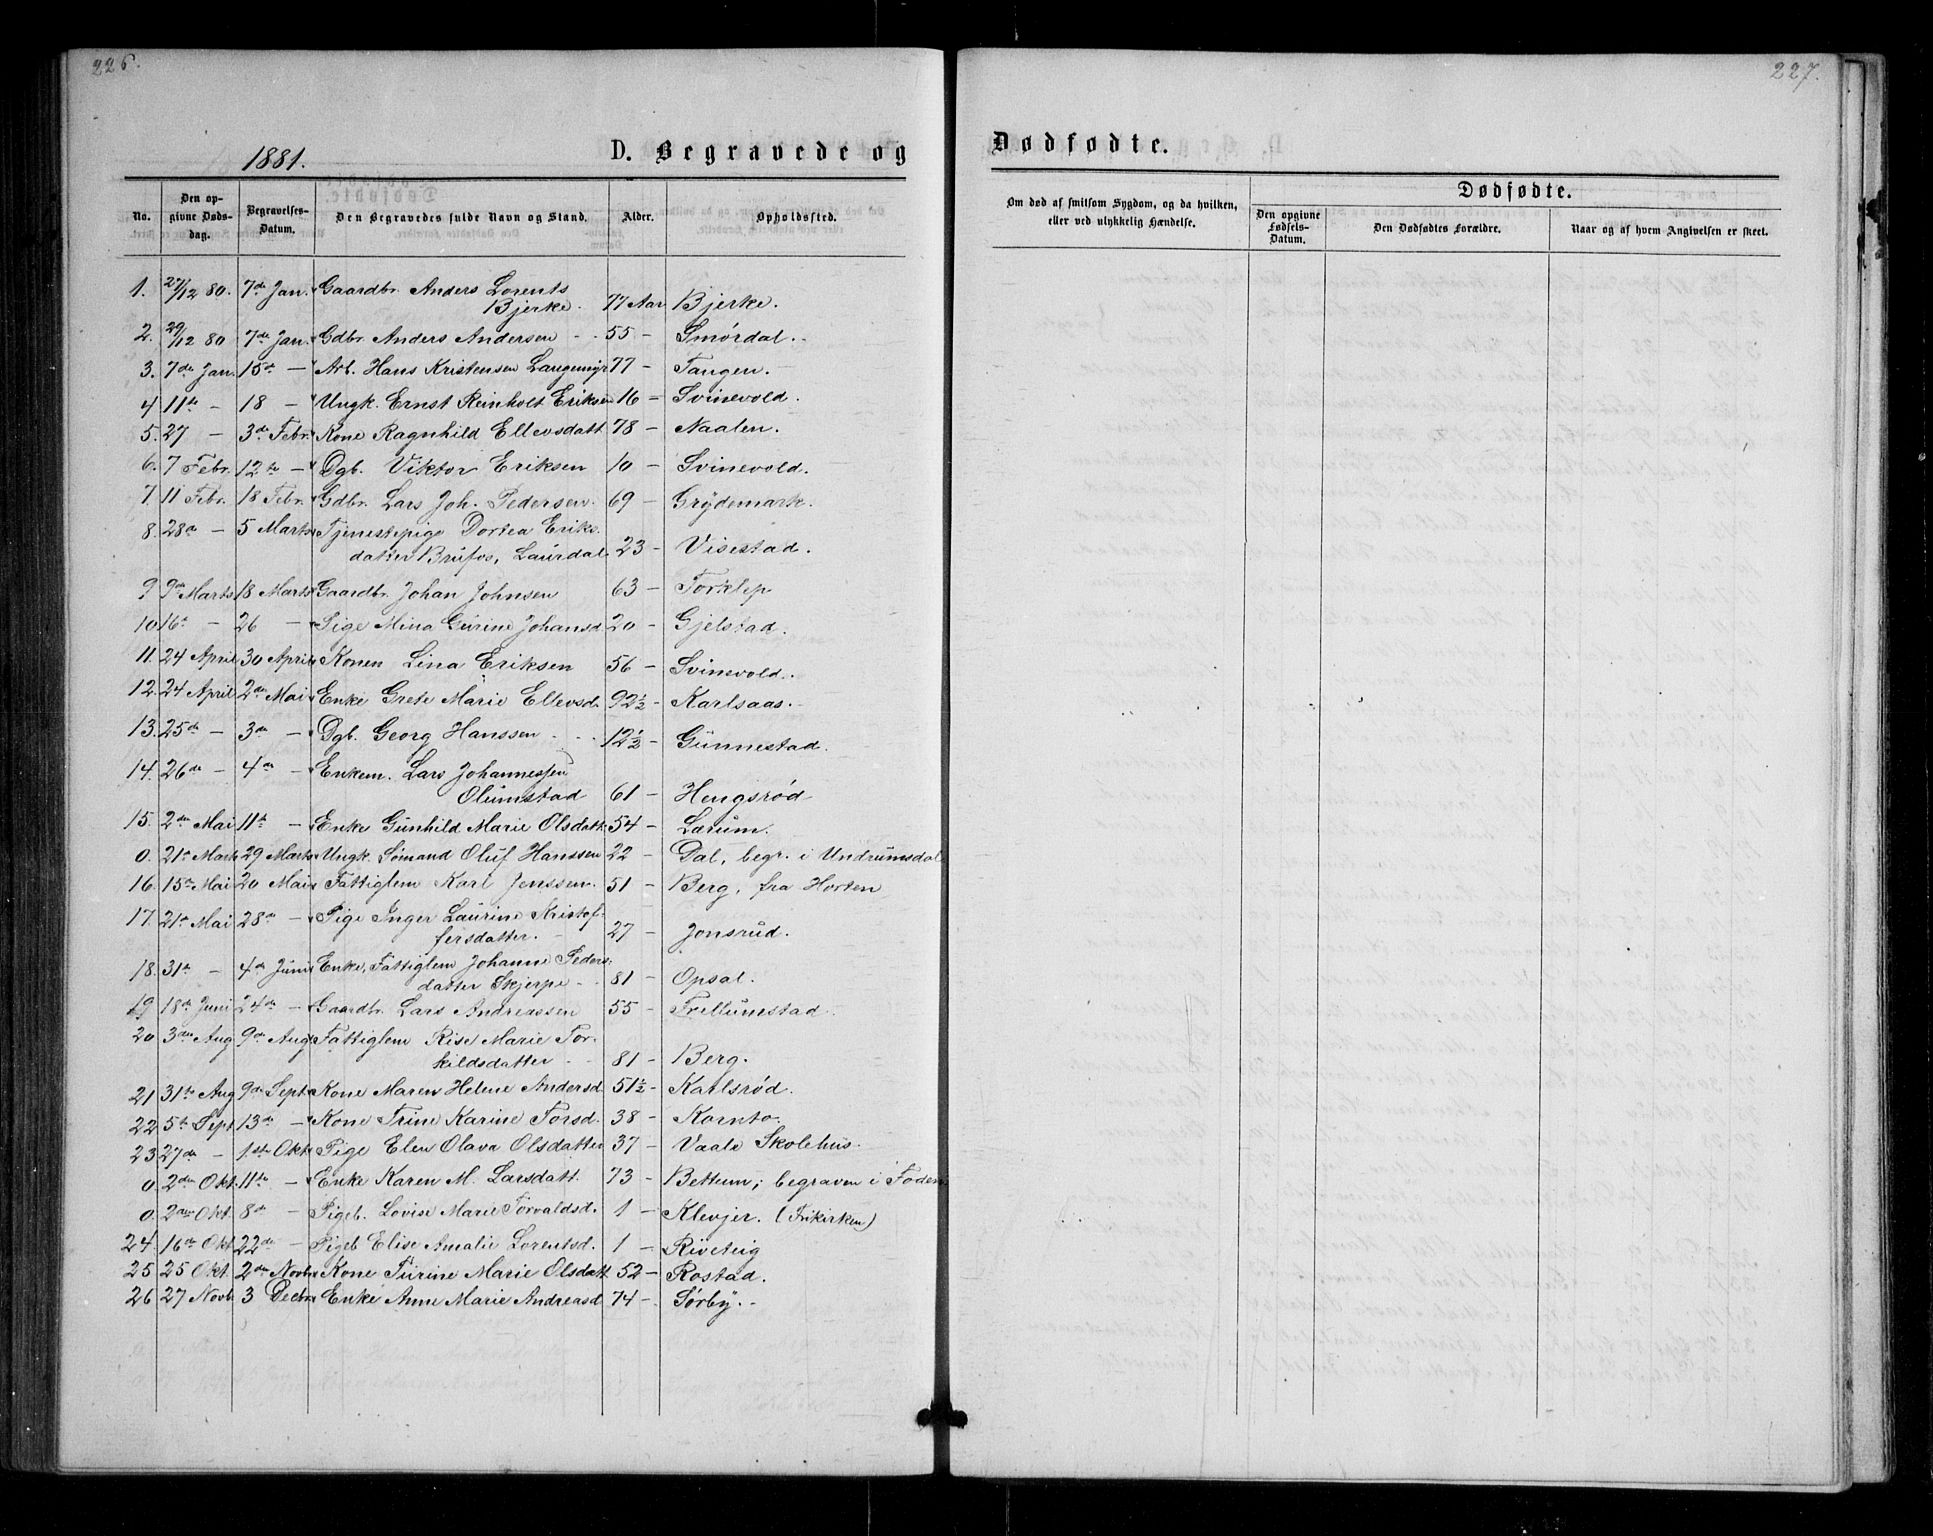 226.
1881.
D. Begravede og
No.
Den opgivne Dødsdag.
Begravelses-Datum.
Den Begravedes fulde Navn og Stand.
Alder.
Opholdssted.
1. 27/12 80. 7de Jan. Gaardbr. Anders Lorents
Bjerke. 77 Aar Bjerke.
2. 29/12 80 7de Jan. Gdbr. Anders Andersen 55 – Smørdal.
3. 7de Jan. 15de – Arb. Hans Kristensen Langemyr 77 – Tangen.
4 11te – 18 – Ungk. Ernst Reinholt Eriksen 16 – Svinevold.
5. 27 – 3de Febr. Kone Ragnhild Ellevsdatt. 78 – Naalen.
6. 7 Febr. 12te – Dgb. Viktor Eriksen 10 – Svinevold.
7. 11 Febr. 18 Febr. Gdbr. Lars Joh. Pedersen. 69 – Grydemark.
8. 28de – 5 Marts Tjenestepige Dortea Eriks-
datter Brufos, Laurdal. 23 – Visestad.
9 9de Marts 18 Marts Gaardbr. Johan Johnsen 63 – Torklep
10 16de – 26 – Pige Mina Gurine Johansd. 20 – Gjelstad.
11. 24 April 30 April Konen Lina Eriksen 56 – Svinevold.
12. 24 April 2den Mai Enke Grete Marie Ellevsd. 92½ – Karlsaas.
13. 25de – 3de – Dgb. Georg Hanssen 12½ – Gunnestad.
14. 26de – 4de – Enkem. Lars Johannessen
Olumstad 61 – Hengsrød
15. 2den Mai 11te – Enke Gunhild Marie Olsdatt. 54 – Lærum.
0. 21de Marts 29 Marts Ungk. Sømand Oluf Hanssen 22 – Dal, begr. i Undrumsdal
16. 15de Mai 20 Mai Fattiglem Karl Jenssen. 51 – Berg, fra Horten
17. 21de Mai 28de – Pige Inger Laurine Kristof-
fersdatter. 27 – Jonsrud.
18. 31te – 4de Juni Enke, Fattiglem Johanne Peders-
datter Skjerpe 81 – Opsal.
19 18de Juni 24de – Gaardbr. Lars Andreassen 55 – Trellumstad
20 3die Aug 9de Aug Fattiglem Rise Marie Tor-
kildsdatter 81 – Berg.
21 31te Aug 9de Sept Kone Maren Helene Andersd. 51½ – Karlsrød.
22 5te Sept 13de – Kone Trine Karine Torsd. 38 – Kornto.
23 27de – 1ste Okt. Pige Elen Olava Olsdatter 37 – Vaale Skolehus.
0. 2den Okt. 11te – Enke Karen M. Larsdatt. 73 – Bettum; begraven i Foden
0. 2den Okt. 8de – Pigeb. Lovise Marie Torvaldsd. 1 – Klevjer. (Frikirken)
24. 16de Okt. 22de – Pigeb Elise Amalie Lorentsd. 1 – Riveteig
25 25 Okt. 2den Novbr Kone Turine Marie Olsdatt. 52 – Rostad.
26 27 Novb. 3 Decbr. Enke Anne Marie Andreasd. 74 – Sørby.
227.
Dødfødte.
Om død af smitsom Sygdom, og da hvilken,
eller ved ulykkelig Hændelse.
Dødfødte.
Den opgivne Fødsels-Datum.
Den Dødfødtes Forældre.
Naar og af hvem Angivelsen er skeet.